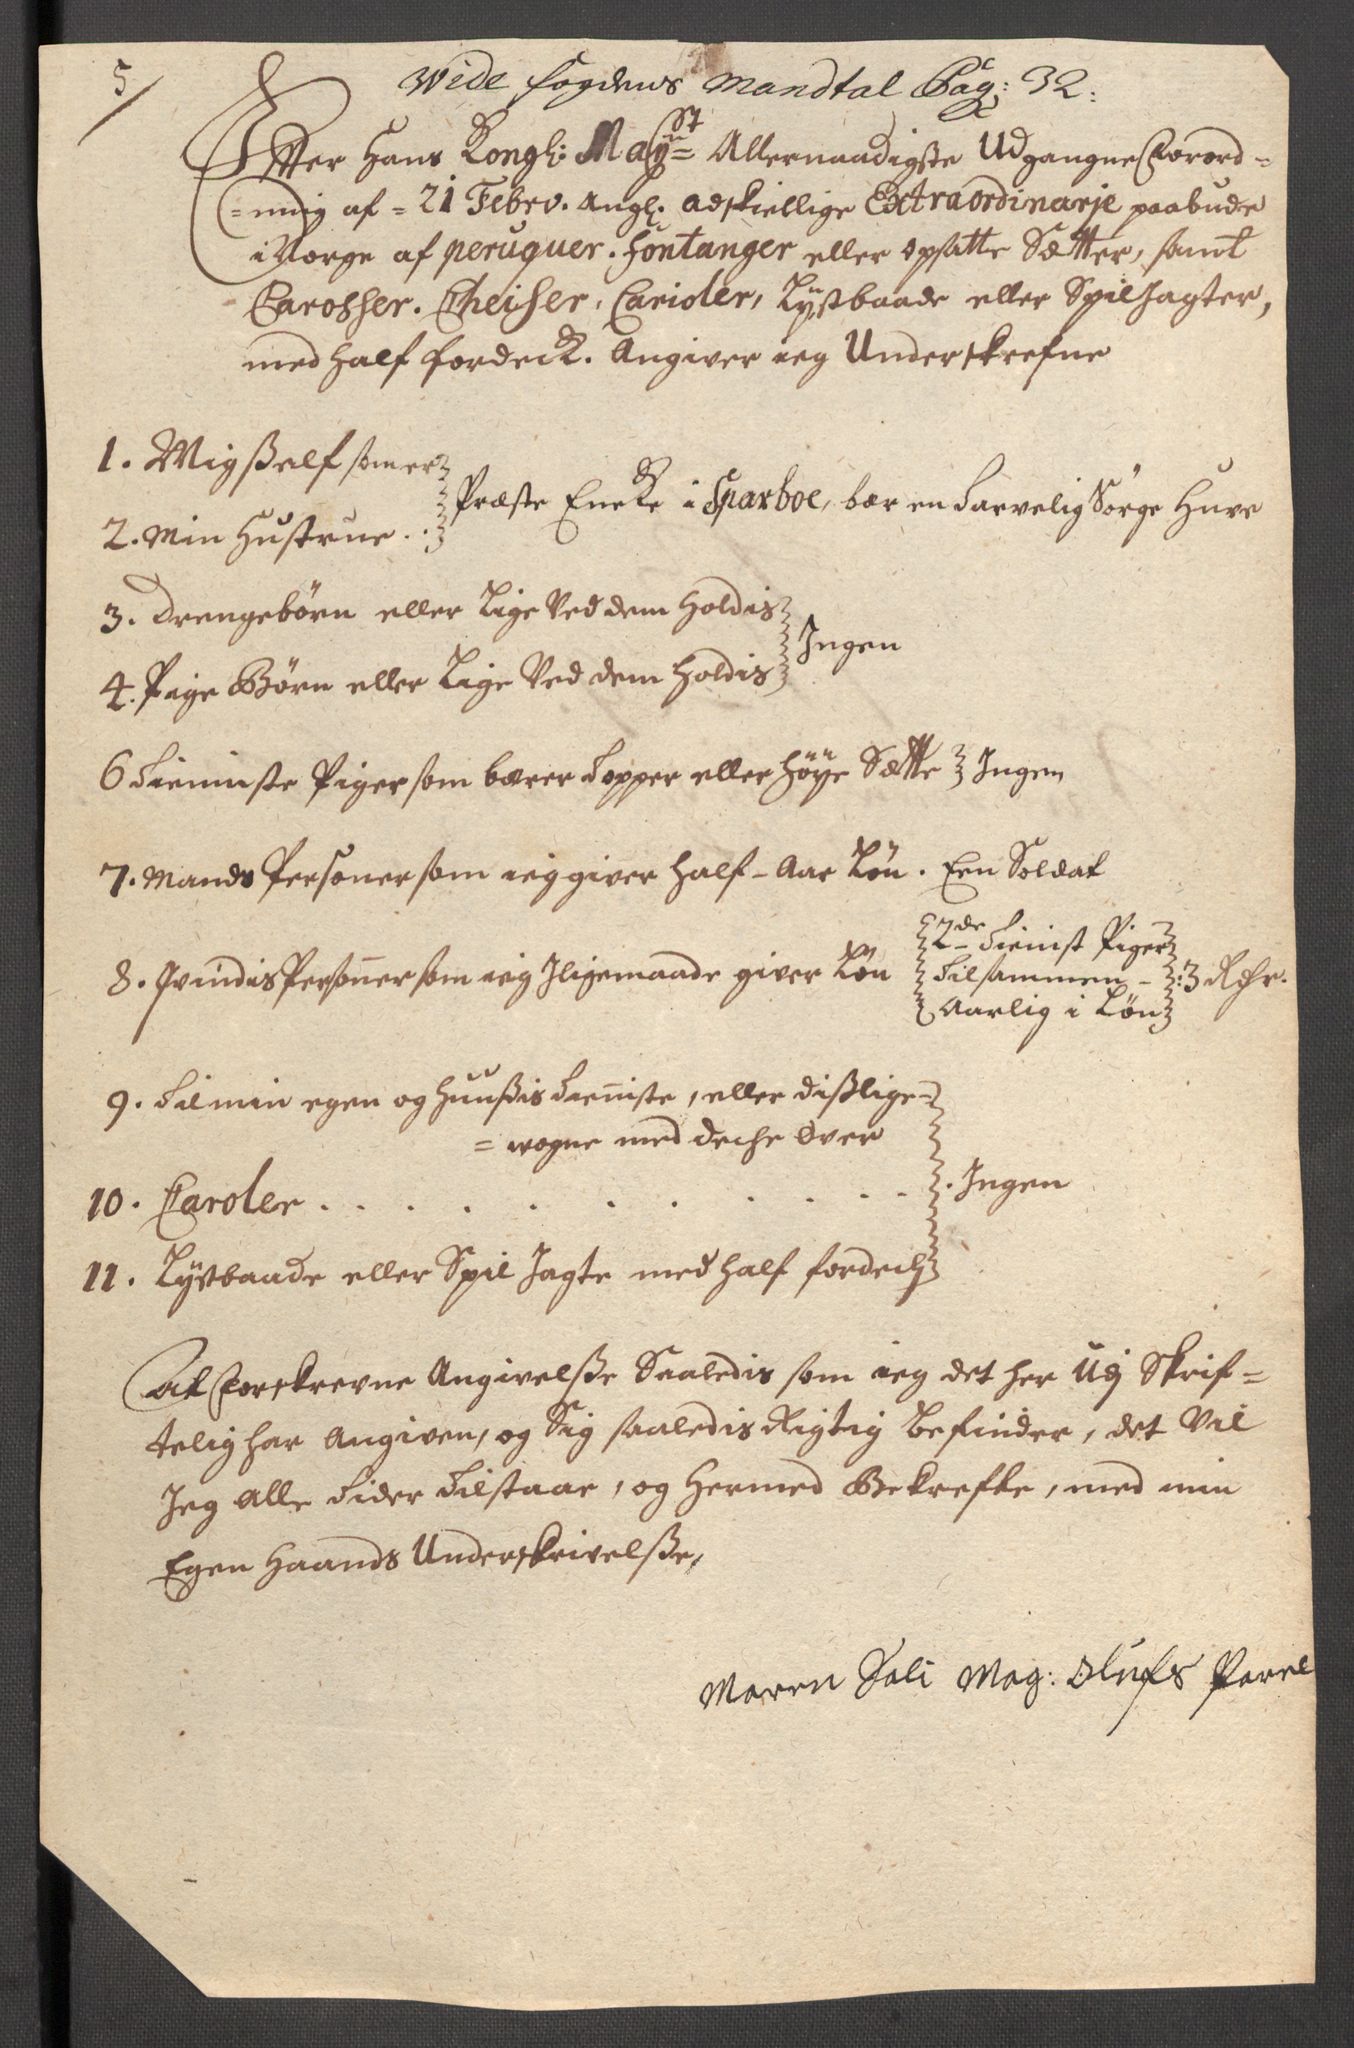 5/
Wide fogdens Mandtal Pag: 32:
Effter Hans Kongl: May^st Allernaadigste Udgangne Forord=
=ning af = 21 Febrv. Angl. adskiellige Extraordinarje paabude
i Norge af peruquer. fontanger eller opsatte Sætter, samt
Carosser. Cheiser, Carioler, Lÿstbaade eller Spiljagter,
med half fordeck. Angiver ieg Underskrefne
1. Mig Self som er
2. Min Hustrue . .
Præste Encke i Sparboe, bær en Tarvelig Sörge Huve
3. Drengebörn eller Lige Ved dem Holdis
4. Pige Börn eller Lige Ved dem Holdis
Ingen
6 Tieniste Piger som bærer Topper eller höÿe Sætte Ingen
7. Mands Personer som ieg giver half-Aar Lön . Een Soldat
8. Qvindis Personer som ieg Iligemaade giver Lön
2de Tienist Piger
Tilsammen -
Aarlig i Lön
: 3 Rdr.
9. Til min egen og Huußis Tieniste, eller dißlige=
= wogne med deche over
10. Caroler . . . . . . . . . .
11. Lÿstbaade eller Spil Jagte med half fordech
. Ingen
At Forskrevne Angivelße Saaledis som ieg det her Udj Skrif=
telig har Angiven, og Sig saaledis Rigtig Befinder, det Vil
Jeg Alle Tider Tilstaae, og Hermed Bekrefte, med min
Egen Haands Underskrivelße,
Maren Sali Mag: Olufs Parel